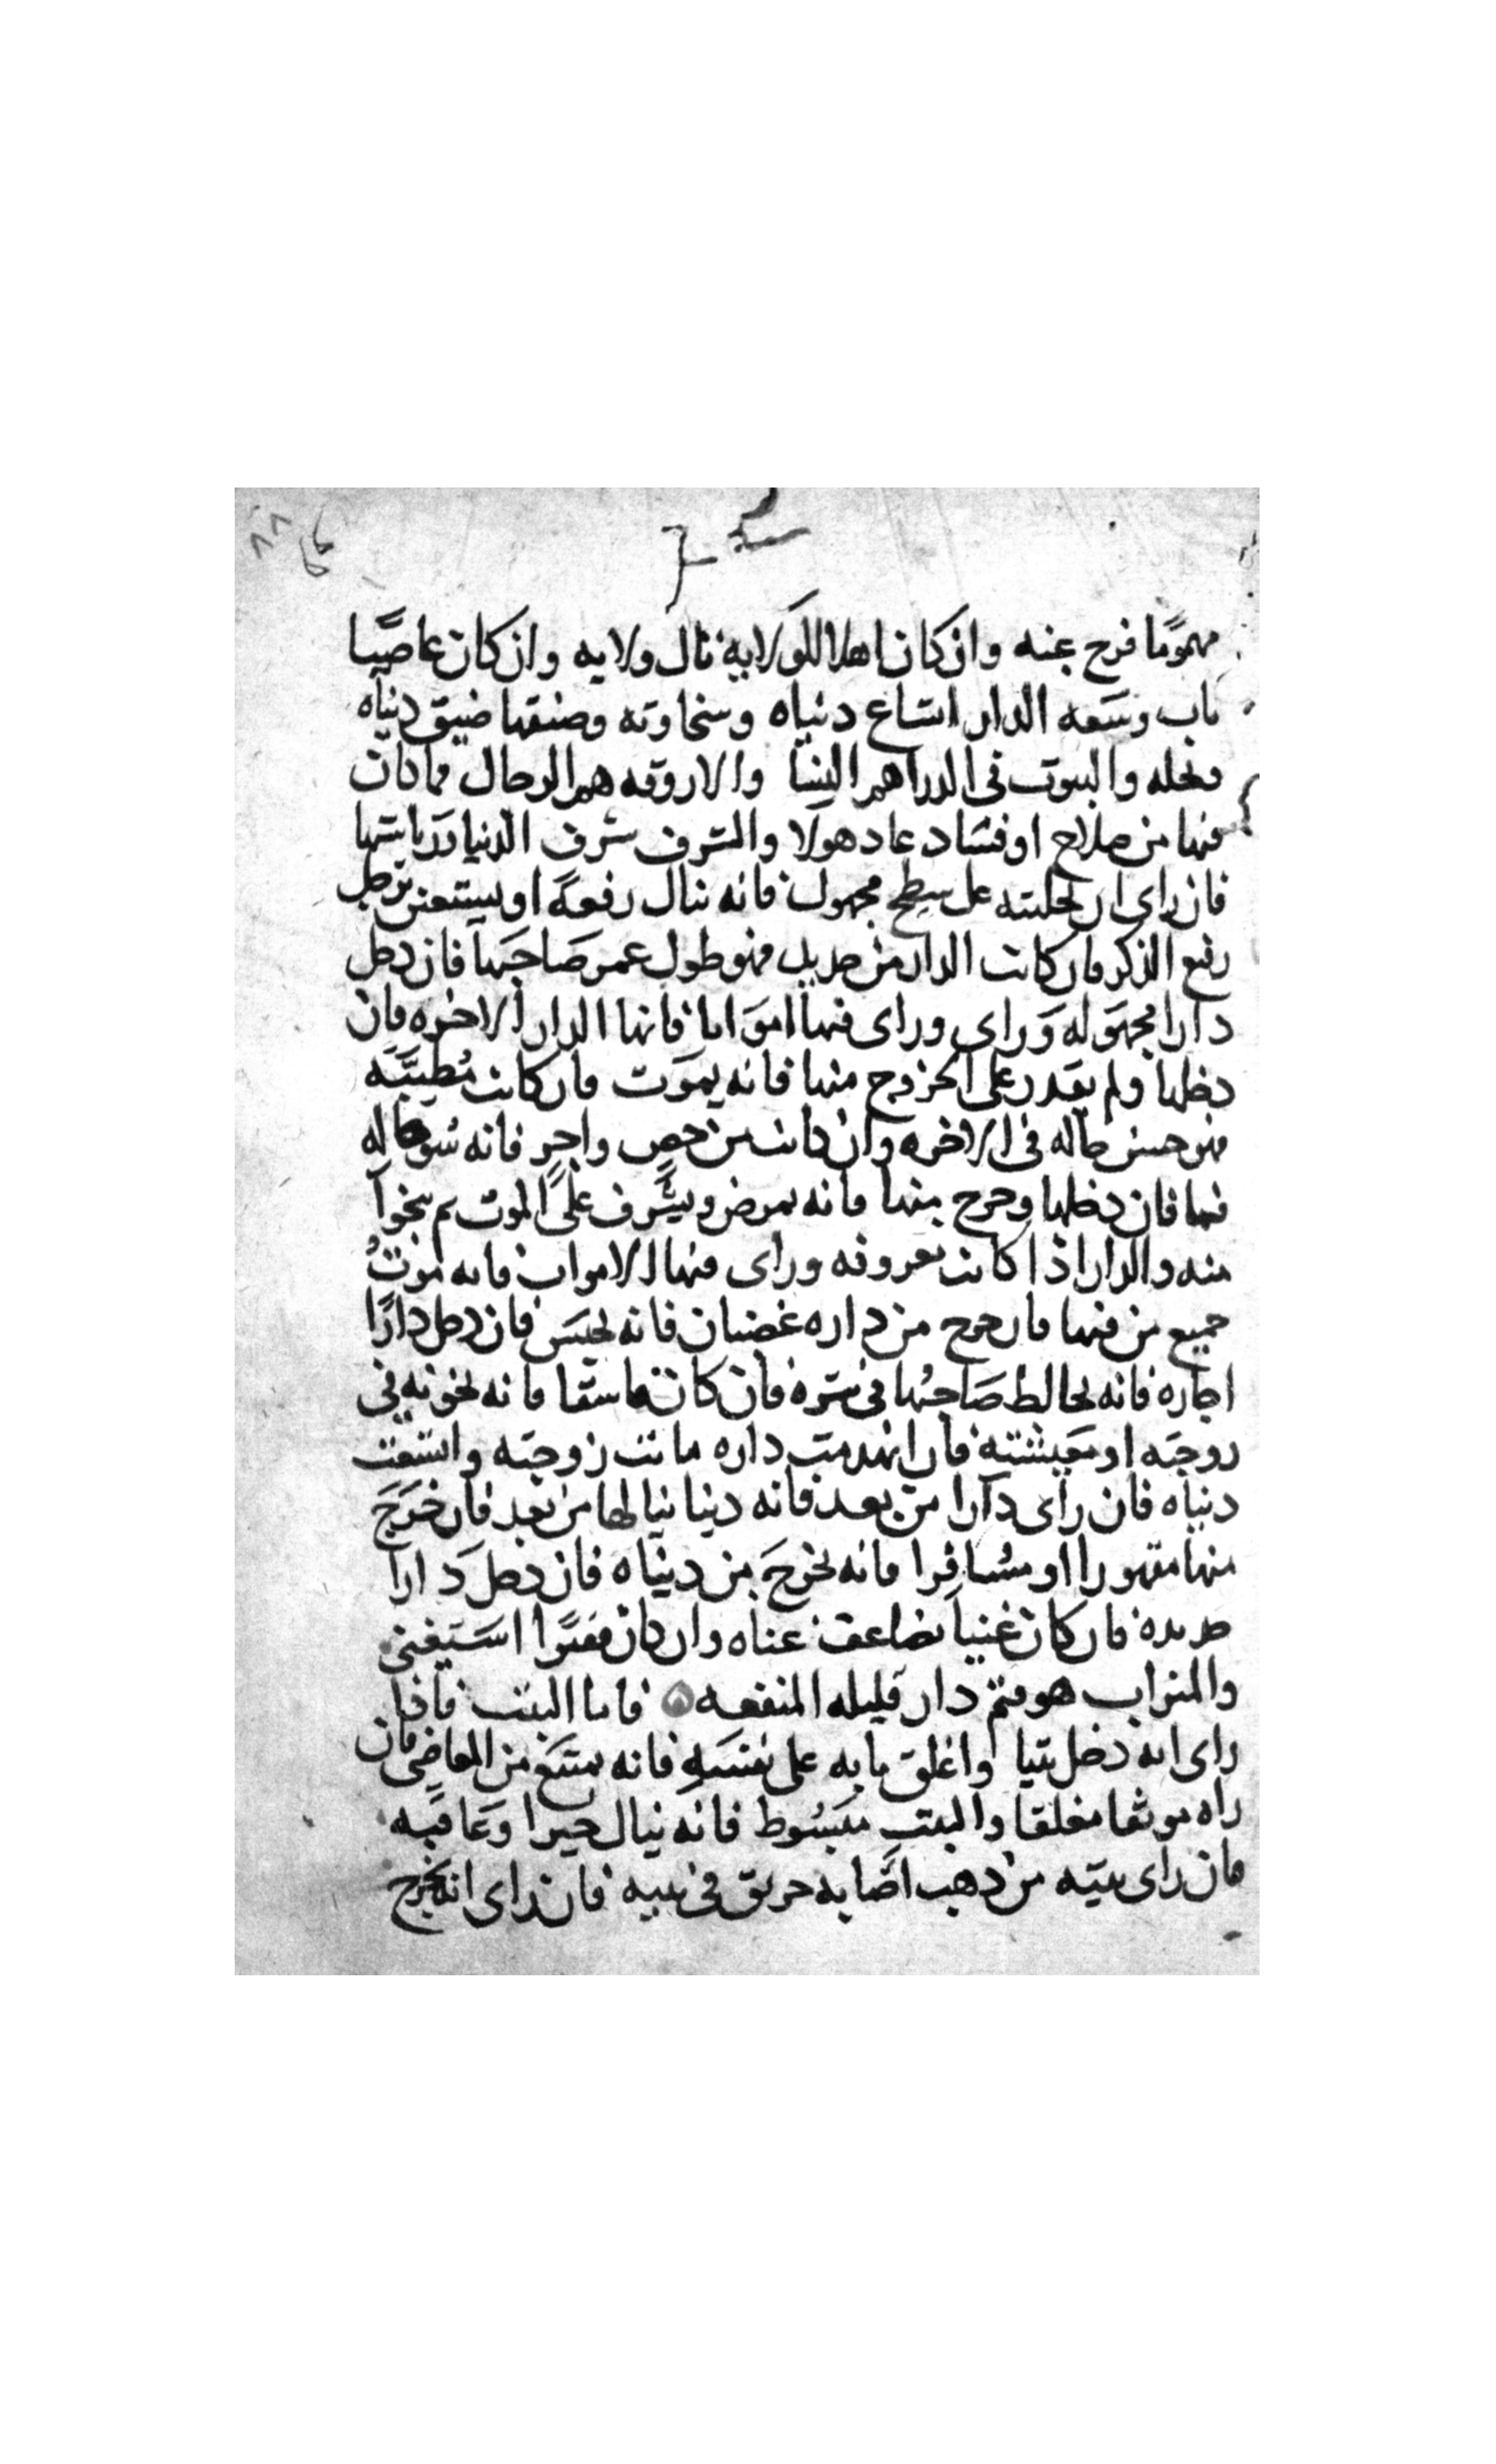 ٨٨
مهمومًا فرج عنه وان كان اهلا للولاية نال ولايه وان كان عاصيًا
تاب وسعه الدار اتساع دنياه وسخاوته وضيقها ضيق دنياه
وبخله والبيوت في الدراهم النسا والاروقه هم الرجال فما كان
فيها من صلاح او فساد عاد هولا والشرف شرف الدنيا ورياستها
فان راى ان جلسته على سطح مجهول فانه ينال رفعة او يستعين برجل
رفيع الذكر فان كانت الدار من حديد فهو طول عمر صاحبها فان دخل
دارا مجهوله وراى وراى فيها امواتا فانها الدار الاخره فان
دخلها ولم يقدر على الخروج منها فانه يموت فان كانت مطيبه
فهو حسن حاله في الاخره وان كانت من جص واجر فانه سو حاله
فيها فان دخلها وخرج منها فانه يمرض ويشرف على الموت ثم ينجوا
منه والدار اذا كانت معروفه وراى فيها الاموات فانه موت
جميع من فيها فان خرج من داره غضبان فانه يحبس فان دخل دارًا
اجاره فانه يخالط صاحبها في ستره فان كان فاسقا فانه يخونه في
زوجته او معيشته فان انهدمت داره ماتت زوجته واتسعت
دنياه فان راى دارا من بعد فانه دنيا ينالها من بعد فان خرج
منها مقهورا او مسافرا فانه يخرج من دنياه فان دخل دارا
جديده فان كان غنيا تضاعف غناه وان كان فقيرا استغنى
والميزاب هو قيم دار قليله المنفعه فاما البيت فاذا
راى انه دخل بيتا واغلق بابه على نفسه فانه يمتنع من المعاصي فان
راه موثقا مغلقا والبيت مبسوط فانه ينال خيرا وعافيه
فان راى بيته من ذهب اصابه حريق في بيته فان راى انه يخرج